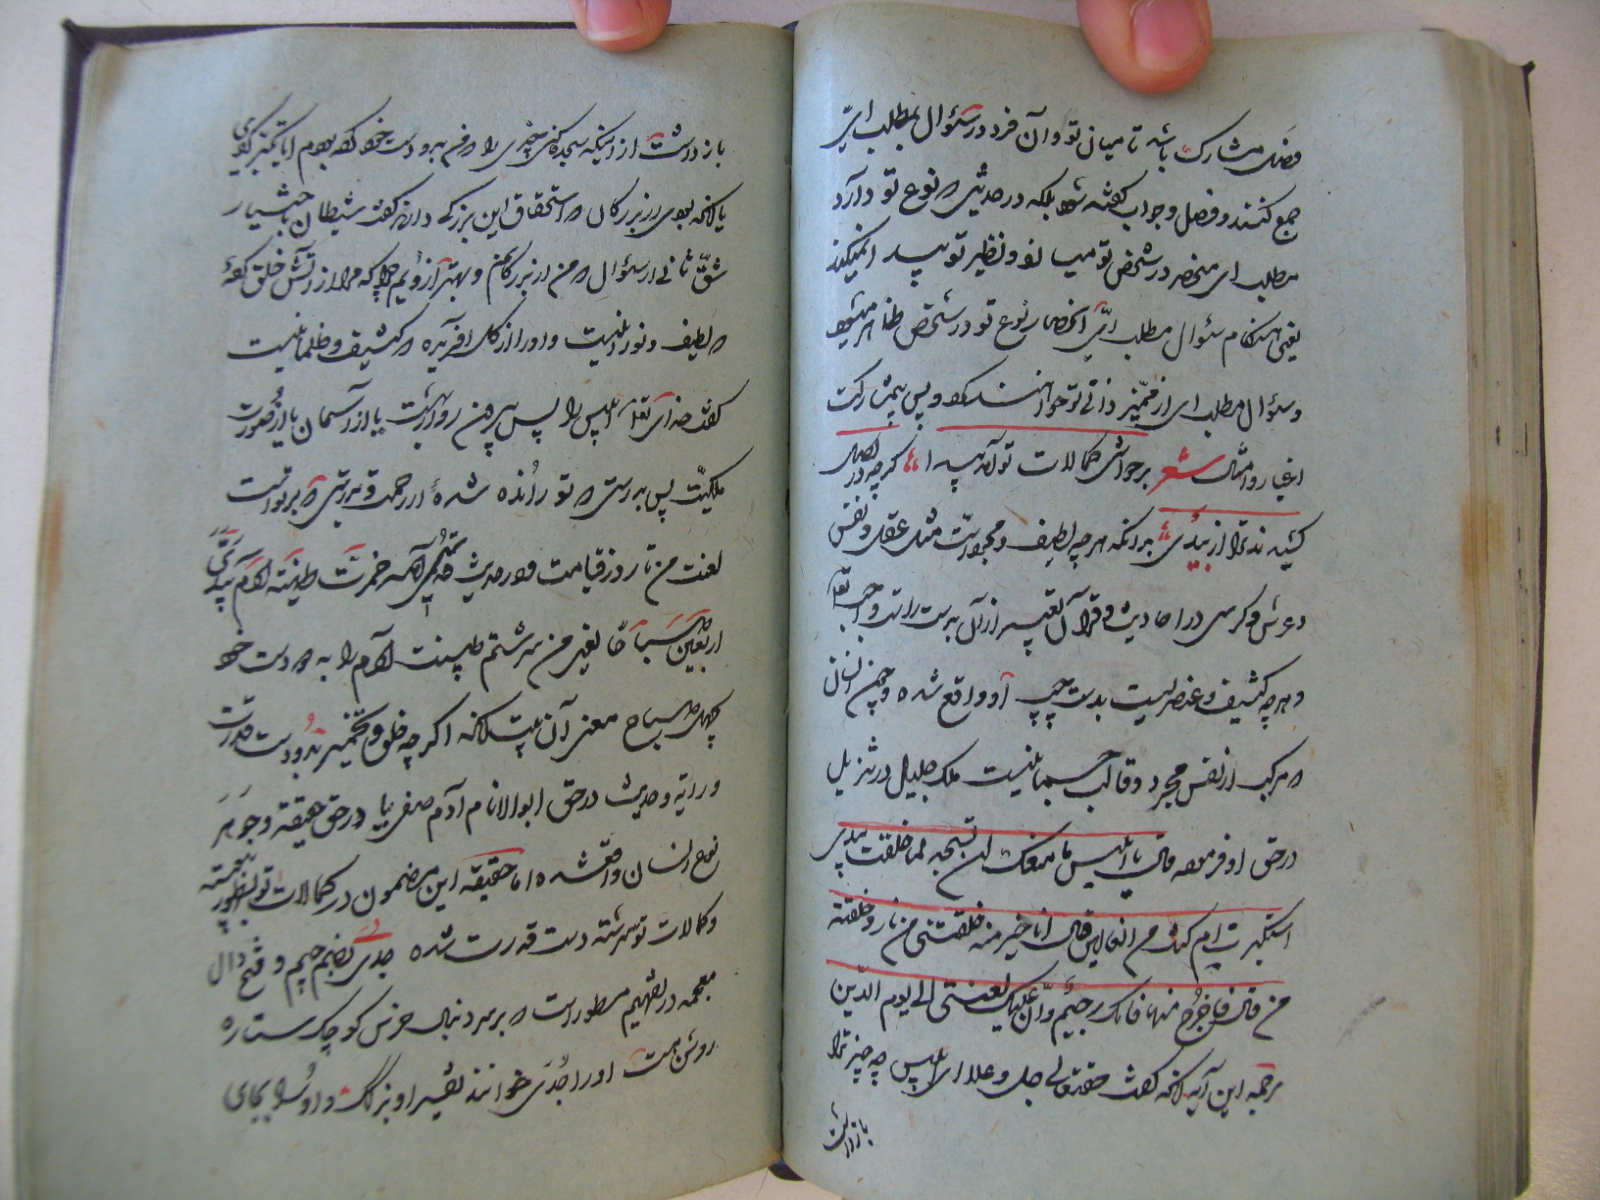 فصل مشارک باشد تا میان تو و آن فرد در سؤال بمطلب ای
جمع کنند و فصل و جواب گفته شود بلکه در حدیثی که نوع تو دارد
مطلب ای منحصر در شخص تو میباید و نظیر تو پیدا نمیکند
یعنی هنگام سؤال مطلب ای انحصار نوع تو در شخص ظاهر میشود
و سؤال مطلب ای از ممیز ذاتی تو خواهند کرد و پس بمشارکت
اغیار و امثال شعر بر حواشی کمالات تو آمد پیدا گرچه در اصل
کشیدند ترا از بیدی بدانکه هر چه لطیف و مجرد است مثل عقل و نفس
و عرش و کرسی در احادیث و قرآن تعبیر از آن بدست راست واجب تعا
و هر چه کثیف و عنصریست بدست چپ او واقع شده و چون انسان
مرکب از نفس مجرد و قالب جسمانیست ملک جلیل در تنزیل
در حق او فرموده قال یا ابلیس ما منعک ان تسجد لما خلقت بیدی
استکبرت ام کنت من العالین قال انا خیر منه خلقتنی من نار و خلقته
من قال فاخرج منها فانک رجیم و ان علیک لعنتی الی یوم الدین
ترجمه این آیه آنکه گفت حقتعالی جل و علا ای ابلیس چه چیز ترا
بازداشت
بازداشت از اینکه سجده کنی چیزی را که من بدو دست خود
یا آنکه بودی از بزرگان که استحقاق این بزرگی دارند گفت شیطان باختیار
شق ثانی از سؤال که من از بزرگانم و بهتر از ویم چرا که مرا از آتش خلق کرده
که لطیف و نورانیست و او را از گل آفریده که کثیف و ظلمانیست
گفت خدای تعالی ابلیس را پس بیرون رو از بهشت یا از آسمان یا از صورت
ملکیت پس بدرستی که تو رانده شدهٔ از رحمت و بدرستی که بر تو است
لعنت من تا روز قیامت و در حدیث قدسی آمده خمرت طینة آدم بیدی
اربعین صباحا یعنی من سرشتم طینت آدم را به دو دست خود
چهل صباح معنی آن نیست آنکه اگر چه خلق و تخمیر بدو دست قدرت
در آیه و حدیث در حق ابو الانام آدم صفی بیا در حق حقیقة و جوهر
نوع انسان واقع شده اما حقیقه این مضمون در کمالات تو بظهور پیوسته
و کمالات تو سرشته دست قدرت شده جدی بضم جیم و فتح دال
معجمه در تفهیم مسطور است که بر سر دنبال خرس کوچک ستاره
روشن هست او را جدی خوانند تفسیر او بزک و او را بجای